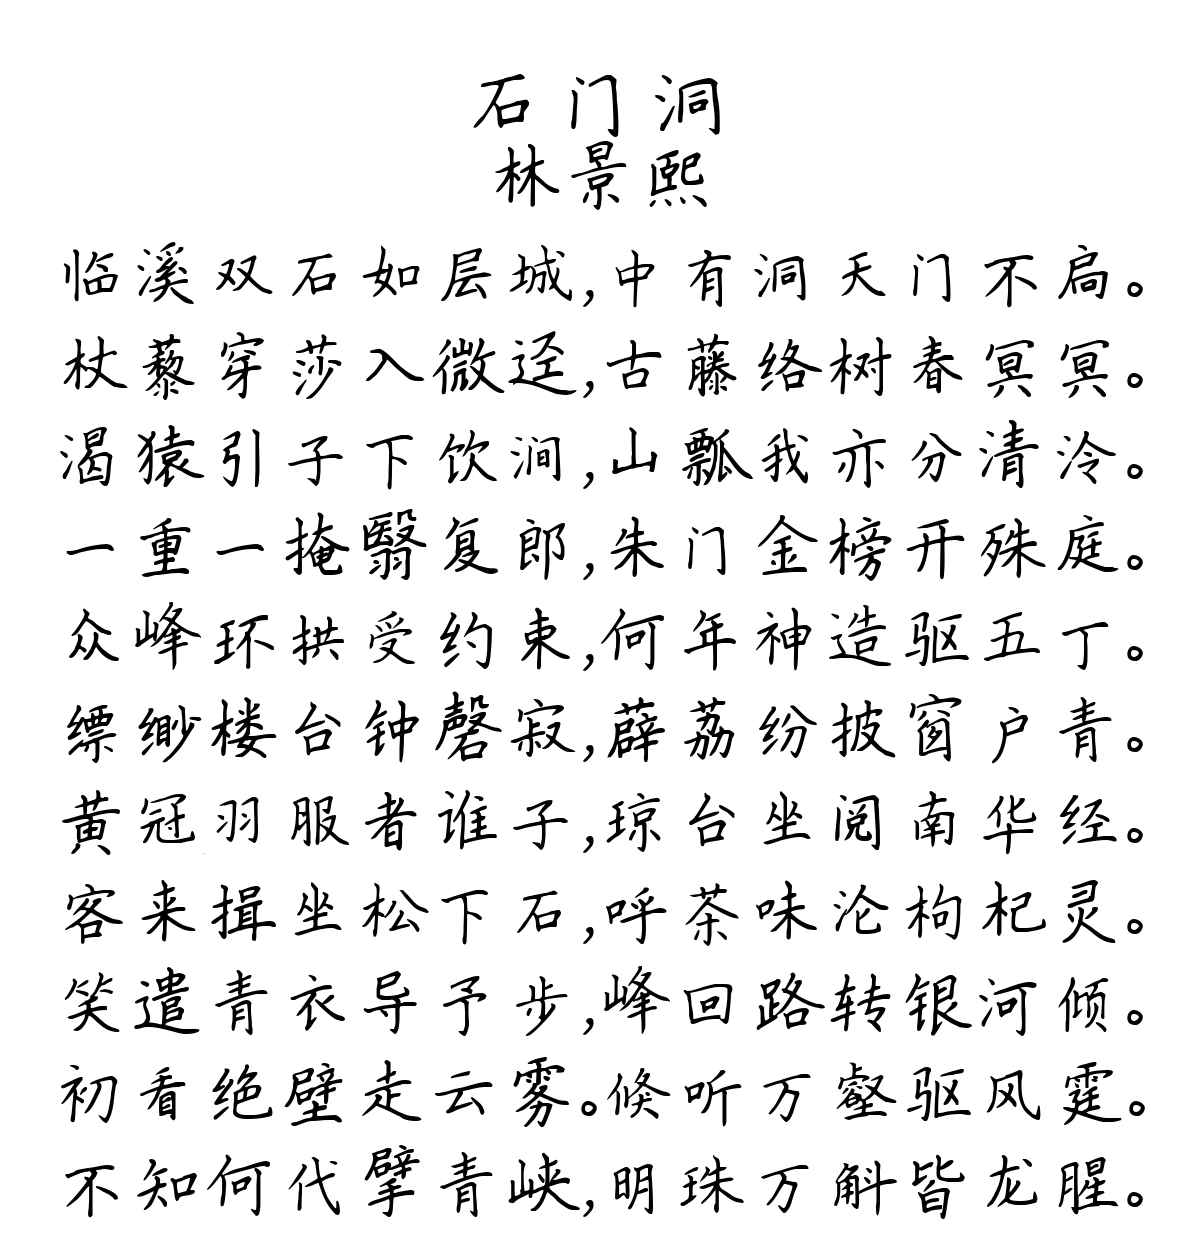 石门洞
林景熙
临溪双石如层城,中有洞天门不扃。
杖藜穿莎入微迳,古藤络树春冥冥。
渴猿引子下饮涧,山瓢我亦分清泠。
一重一掩翳复郎,朱门金榜开殊庭。
众峰环拱受约束,何年神造驱五丁。
缥缈楼台钟磬寂,薜荔纷披窗户青。
黄冠羽服者谁子,琼台坐阅南华经。
客来揖坐松下石,呼茶味沦枸杞灵。
笑遣青衣导予步,峰回路转银河倾。
初看绝壁走云雾。倏听万壑驱风霆。
不知何代擘青峡,明珠万斛皆龙腥。